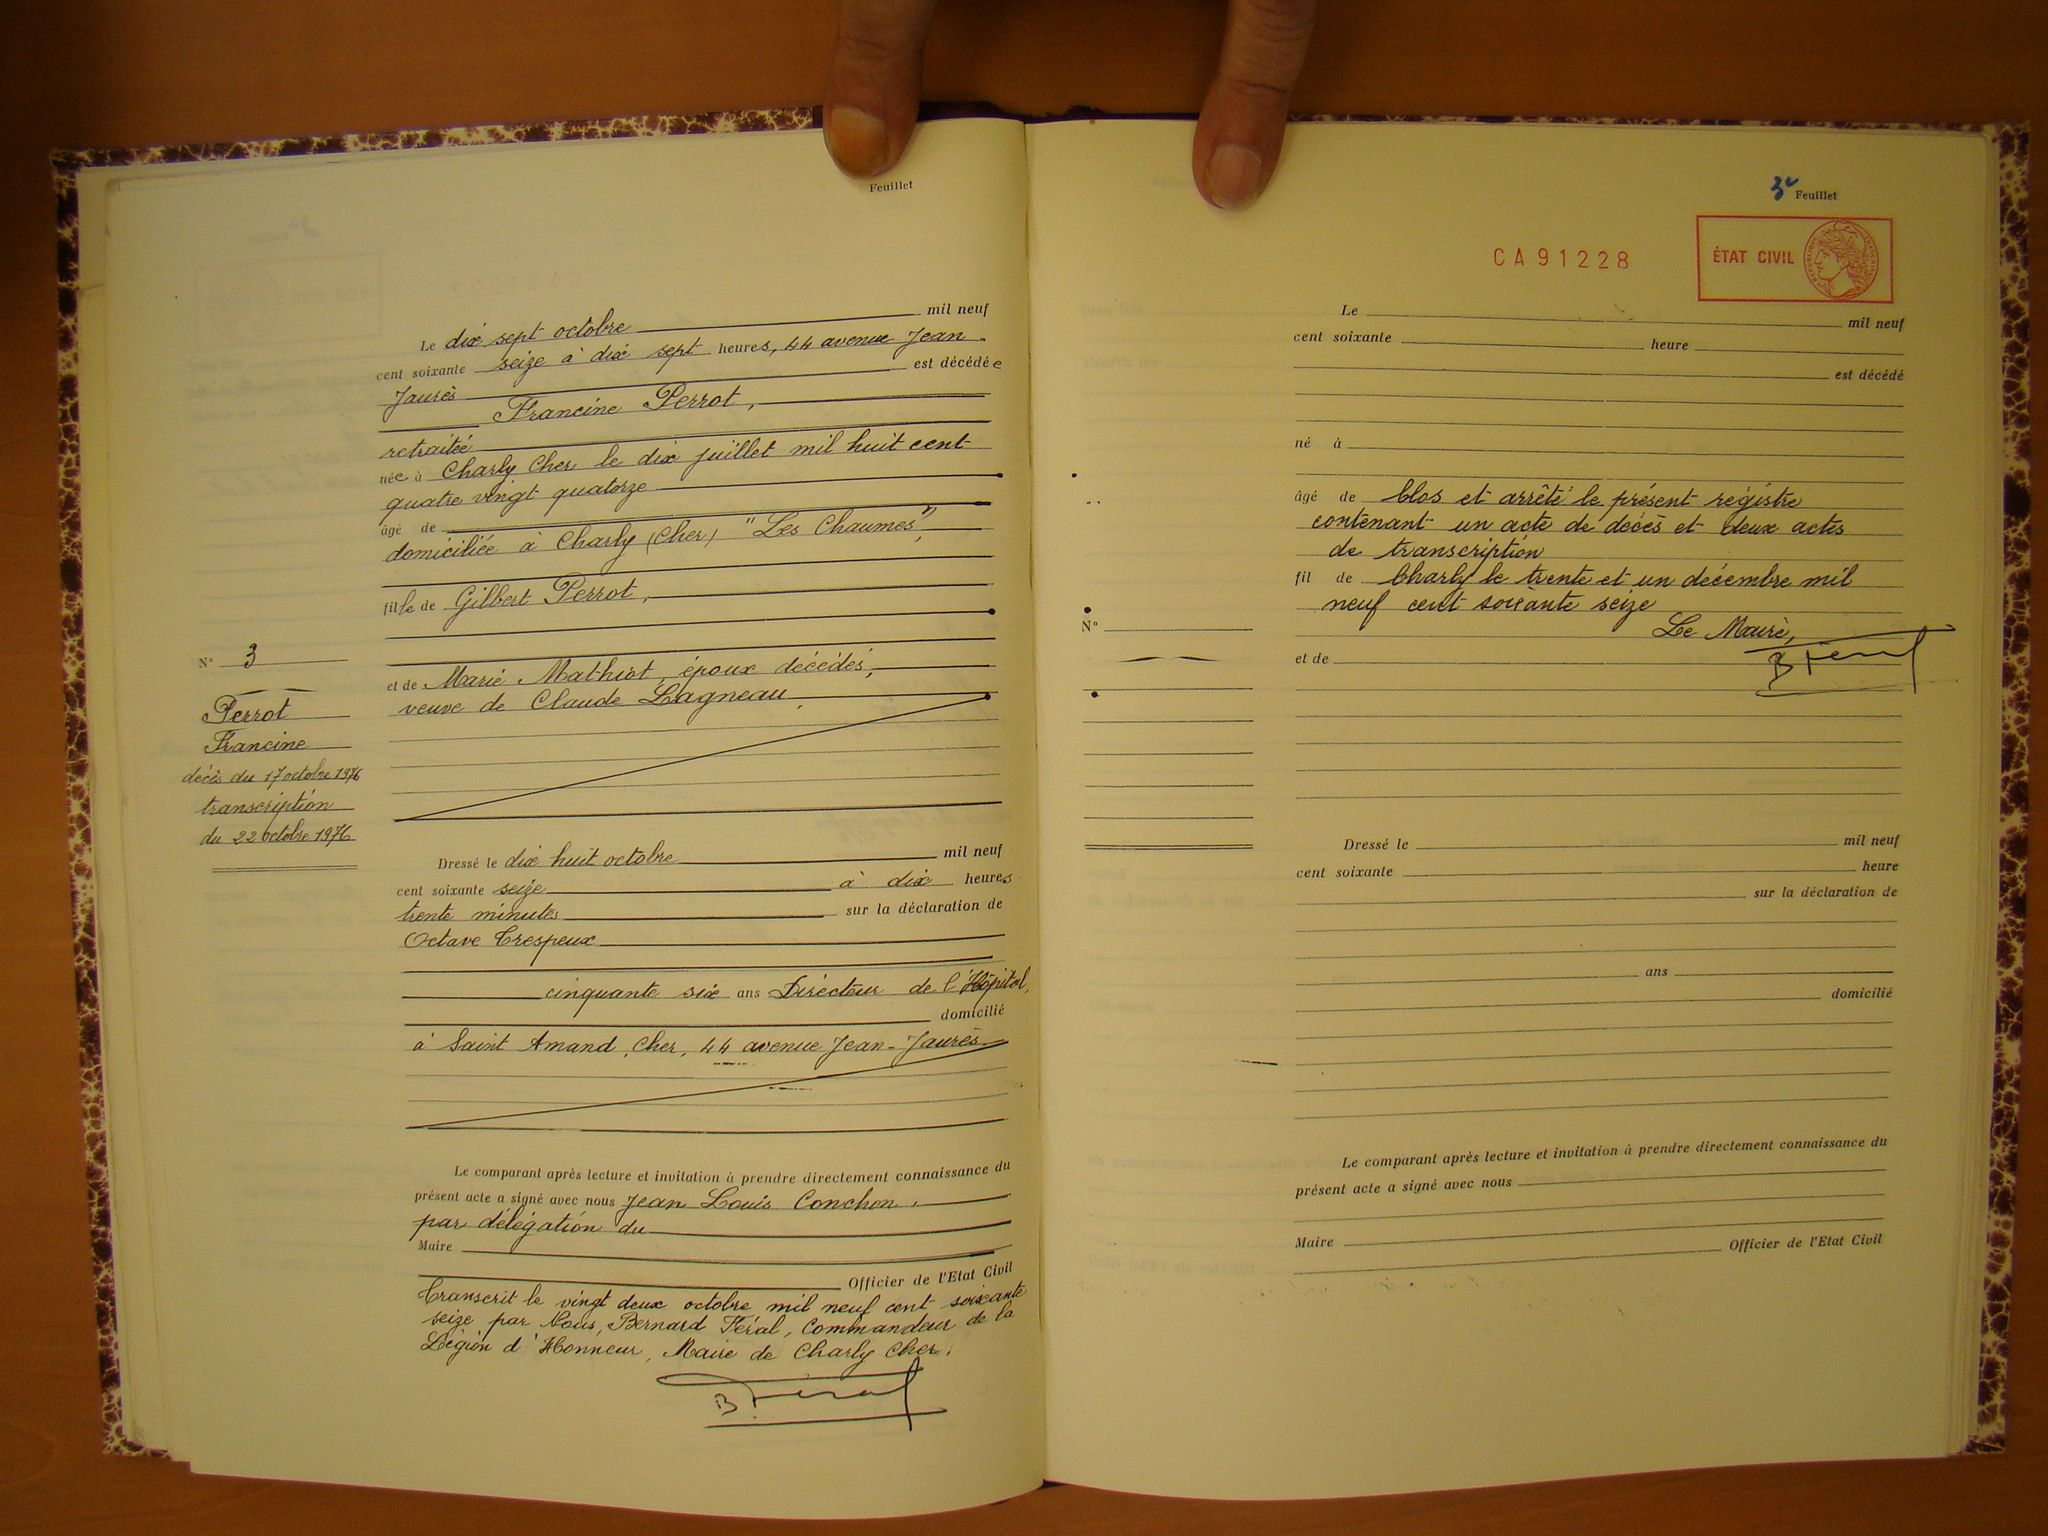 Feuillet
Le dix sept octobre mil neuf
cent soixante seize à dix sept heures, 44 avenue Jean
Jaurès est décédée
Francine Perrot,
retraitée
née à Charly Cher le dix juillet mil huit cent
quatre vingt quatorze
âgé de
domiciliée à Charly (Cher) "Les Chaumes",
fille de Gilbert Perrot,
N° 3
et de Marie Mathiot, époux décédés,
veuve de Claude Lagneau.
Perrot
Francine
décès du 17 octobre 1976
transcription
du 22 octobre 1976
Dressé le dix huit octobre mil neuf
cent soixante seize à dix heures
trente minutes sur la déclaration de
Octave Crespeux
cinquante six ans Directeur de l'Hôpital,
domicilié
à Saint Amand, Cher, 44 avenue Jean-Jaurès
Le comparant après lecture et invitation à prendre directement connaissance du
présent acte a signé avec nous Jean Louis Conchon,
par délégation du
Maire
Officier de l'Etat Civil
Transcrit le vingt deux octobre mil neuf cent soixante
seize par Nous, Bernard Féral, Commandeur de la
Légion d'Honneur, Maire de Charly Cher.
B Féral
3e Feuillet
CA91228
ÉTAT CIVIL
Le mil neuf
cent soixante heure
est décédé
né à
âgé de Clos et arrêté le présent registre
contenant un acte de décès et deux actes
de transcription
fil de Charly le trente et un décembre mil
neuf cent soixante seize
N°
Le Maire,
et de
B Féral
Dressé le mil neuf
cent soixante heure
sur la déclaration de
ans
domicilié
Le comparant après lecture et invitation à prendre directement connaissance du
présent acte a signé avec nous
Maire
Officier de l'Etat Civil